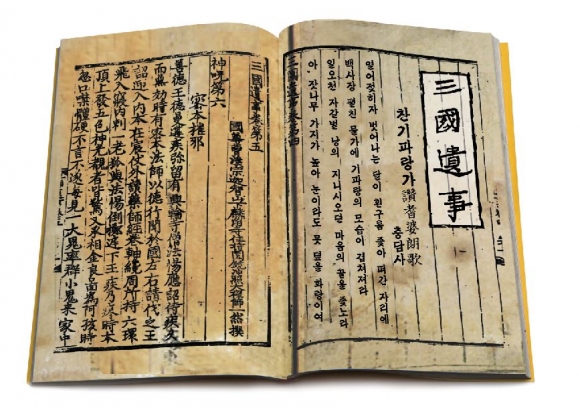 三國遺事
찬기파랑가 讚耆婆朗歌
충담사
열어젖히자 벗어나는 달이 흰구름 좇아 떠간 자리에
백사장 펼친 물가에 기파랑의 모습이 겹쳐져라
일오천 자갈벌 낭의 지니시오던 마음의 끝을 좇노라
아, 잣나무 가지가 높아 눈이라도 못 덮을 화랑이여
三國遺事卷第四
三國遺事卷第五
國尊曹溪宗迦智山下麟角寺住持圓鏡冲照大禪師一然撰
神呪第六
密本摧邪
善德王德曼遘疾弥留有興輪寺僧法惕應詔侍疾久
而無効時有密本法師以德行聞於國左右請代之王
詔迎入內本在宸仗外讀藥師經卷軸纔周所持六環
飛入寢內刺一老狐與法惕倒擲庭下王疾乃瘳時本
頂上發五色神光覩者皆驚又承相金良啚爲阿孩時
忽口噤體硬不言不遂每見一大鬼率群小鬼來家中